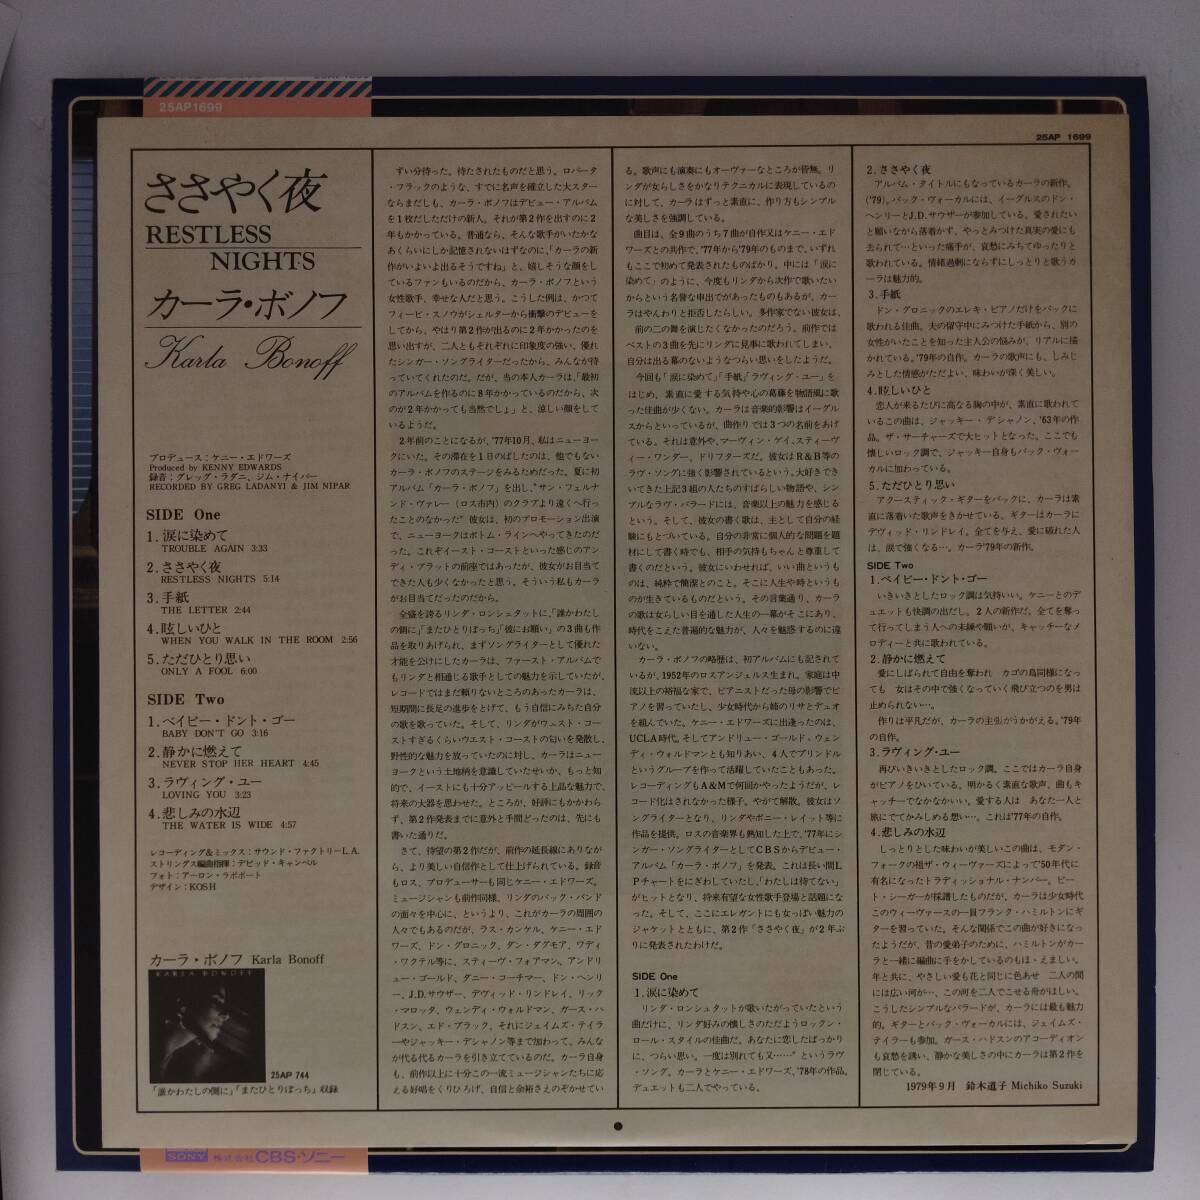 25AP1699
25AP 1699
ささやく夜
RESTLESS
NIGHTS
カーラ・ボノフ
Karla Bonoff
プロデュース：ケニー・エドワーズ
Produced by KENNY EDWARDS
録音：グレッグ・ラダニ、ジム・ナイパー
RECORDED BY GREG LADANYI & JIM NIPAR
SIDE One
1.涙に染めて
TROUBLE AGAIN 3:33
2.ささやく夜
RESTLESS NIGHTS 5:14
3.手紙
THE LETTER 2:44
4.眩しいひと
WHEN YOU WALK IN THE ROOM 2:56
5.ただひとり思い
ONLY A FOOL 6:00
SIDE Two
1.ベイビー・ドント・ゴー
BABY DON'T GO 3:16
2.静かに燃えて
NEVER STOP HER HEART 4:45
3.ラヴィング・ユー
LOVING YOU 3:23
4.悲しみの水辺
THE WATER IS WIDE 4:57
レコーディング&ミックス：サウンド・ファクトリーL.A.
ストリングス編曲指揮：デビッド・キャンベル
フォト：アーロン・ラポポート
デザイン：KOSH
カーラ・ボノフ Karla Bonoff
KARLA BONOFF
25AP 744
「誰かわたしの側に」「またひとりぼっち」収録
ずい分待った。待たされたものだと思う。ロバータ
・フラックのような、すでに名声を確立した大スター
ならまだしも、カーラ・ボノフはデビュー・アルバム
を1枚だしただけの新人。それが第2作を出すのに2
年もかかっている。普通なら、そんな歌手がいたかな
あくらいにしか記憶されないはずなのに、「カーラの新
作がいよいよ出るそうですね」と、嬉しそうな顔をし
ているファンもいるのだから、カーラ・ボノフという
女性歌手、幸せな人だと思う。こうした例は、かつて
フィービ・スノウがシェルターから衝撃のデビューを
してから、やはり第2作が出るのに2年かかったのを
思い出すが、二人ともそれぞれに印象度の強い、優れ
たシンガー・ソングライターだったから、みんなが待
っていてくれたのだ。だが、当の本人カーラは、「最初
のアルバムを作るのに8年かかっているのだから、次
のが2年かかっても当然でしょ」と、涼しい顔をして
いるようだ。
2年前のことになるが、'77年10月、私はニューヨー
クにいた。その滞在を1日のばしたのは、他でもない
カーラ・ボノフのステージをみるためだった。夏に初
アルバム「カーラ・ボノフ」を出し、"サン・フェルナ
ンド・ヴァレー（ロス市内）のクラブより遠くへ行っ
たことのなかった"彼女は、初のプロモーション出演
で、ニューヨークはボトム・ラインへやってきたのだ
った。これぞイースト・コーストといった感じのアン
ディ・プラットの前座ではあったが、彼女がお目当て
できた人も少くなかったと思う。そういう私もカーラ
がお目当てだったのだから。
全盛を誇るリンダ・ロンシュタットに、「誰かわたし
の側に」「またひとりぼっち」「彼にお願い」の3曲も作
品を取りあげられ、まずソングライターとして優れた
才能を公けにしたカーラは、ファースト・アルバムで
もリンダと相通じる歌手としての魅力を示していたが、
レコードではまだ頼りないところのあったカーラは、
短期間に長足の進歩をとげて、もう自信にみちた自分
の歌を歌っていた。そして、リンダがウェスト・コー
ストすぎるくらいウエスト・コーストの匂いを発散し、
野性的な魅力を放っていたのに対し、カーラはニュー
ヨークという土地柄を意識していたせいか、もっと知
的で、イーストにも十分アッピールする上品な魅力で、
将来の大器を思わせた。ところが、好評にもかかわら
ず、第2作発表までに意外と手間どったのは、先にも
書いた通りだ。
さて、待望の第2作だが、前作の延長線にありなが
ら、より美しい自信作として仕上げられている。録音
もロス、プロデューサーも同じケニー・エドワーズ。
ミュージシャンも前作同様、リンダのバック・バンド
の面々を中心に、というより、これがカーラの周囲の
人々でもあるのだが、ラス・カンケル、ケニー・エド
ワーズ、ドン・グロニック、ダン・ダグモア、ワディ
・ワクテル等に、スティーヴ・フォアマン、アンドリ
ュー・ゴールド、ダニー・コーチマー、ドン・ヘンリ
ー、J.D.サウザー、デヴィッド・リンドレイ、リック
・マロッタ、ウェンディ・ウォルドマン、ガース・ハ
ドスン、エド・ブラック、それにジェイムズ・テイラ
ーやジャッキー・デシャノン等まで加わって、みんな
が代る代るカーラを引き立てているのだ。カーラ自身
も、前作以上に十分この一流ミュージシャンたちに応
える好唱をくりひろげ、自信と余裕さえのぞかせてい
る。歌声にも演奏にもオーヴァーなところが皆無。リ
ンダが女らしさをかなりテクニカルに表現しているの
に対して、カーラはずっと素直に、作り方もシンプル
な美しさを強調している。
曲目は、全9曲のうち7曲が自作又はケニー・エド
ワーズとの共作で、'77年から'79年のものまで、いずれ
もここで初めて発表されたものばかり。中には「涙に
染めて」のように、今度もリンダから次作で歌いたい
からという名誉な申出でがあったものもあるが、カー
ラはやんわりと拒否したらしい。多作家でない彼女は、
前の二の舞を演じたくなかったのだろう。前作では
ベストの3曲を先にリンダに見事に歌われてしまい、
自分は出る幕のないようなつらい思いをしたようだ。
今回も「涙に染めて」「手紙」「ラヴィング・ユー」を
はじめ、素直に愛する気持や心の葛藤を物語風に歌
った佳曲が少くない。カーラは音楽的影響はイーグル
スからといっているが、曲作りでは3つの名前をあげ
ている。それは意外や、マーヴィン・ゲイ、スティーヴ
ィー・ワンダー、ドリフターズだ。彼女はR&B等の
ラヴ・ソングに強く影響されているという。大好きでき
いてきた上記3組の人たちのすばらしい物語や、シン
プルなラヴ・バラードには、音楽以上の魅力を感じる
という。そして、彼女の書く歌は、主として自分の経
験にもとづいている。自分の非常に個人的な問題を題
材にして書く時でも、相手の気持もちゃんと尊重して
書くのだという。彼女にいわせれば、いい曲というも
のは、純粋で簡潔とのこと。そこに人生や時というも
のが生きているものだという。その言葉通り、カーラ
の歌は女らしい目を通した人生の一幕がそこにあり、
時代をこえた普遍的な魅力が、人々を魅惑するのに違
いない。
カーラ・ボノフの略歴は、初アルバムにも記されて
いるが、1952年のロスアンジェルス生まれ。家庭は中
流以上の裕福な家で、ピアニストだった母の影響でピ
アノを習っていたし、少女時代から姉のリサとデュオ
を組んでいた。ケニー・エドワーズに出逢ったのは、
UCLA時代。そしてアンドリュー・ゴールド、ウェン
ディ・ウォルドマンとも知りあい、4人でブリンドル
というグループを作って活躍していたこともあった。
レコーディングもA&Mで何回かやったようだが、レ
コード化はされなかった様子。やがて解散。彼女はソ
ングライターとなり、リンダやボニー・レイット等に
作品を提供。ロスの音楽界も熟知した上で、'77年にシ
ンガー・ソングライターとしてCBSからデビュー・
アルバム「カーラ・ボノフ」を発表。これは長い間L
Pチャートをにぎわしていたし、「わたしは待てない」
がヒットとなり、将来有望な女性歌手登場と話題にな
った。そして、ここにエレガントにも女っぽい魅力の
ジャケットとともに、第2作「ささやく夜」が2年ぶ
りに発表されたわけだ。
SIDE One
1.涙に染めて
リンダ・ロンシュタットが歌いたがっていたという
曲だけに、リンダ好みの懐しさのただようロックン・
ロール・スタイルの佳曲だ。あなたに恋したばっかり
に、つらい思い。一度は別れても又……"というラヴ
・ソング。カーラとケニー・エドワーズ、'78年の作品。
デュエットも二人でやっている。
2.ささやく夜
アルバム・タイトルにもなっているカーラの新作。
('79)。バック・ヴォーカルには、イーグルスのドン・
ヘンリーとJ.D.サウザーが参加している。愛されたい
と願いながら落着かず、やっとみつけた真実の愛にも
去られて…といった痛手が、哀愁にみちてゆったりと
歌われている。情緒過剰にならずにしっとりと歌うカ
ーラは魅力的。
3.手紙
ドン・グロニックのエレキ・ピアノだけをバックに
歌われる佳曲。夫の留守中にみつけた手紙から、別の
女性がいたことを知った主人公の悩みが、リアルに描
かれている。'79年の自作。カーラの歌声にも、しみじ
みとした情感がただよい、味わいが深く美しい。
4.眩しいひと
恋人が来るたびに高なる胸の中が、素直に歌われて
いるこの曲は、ジャッキー・デシャノン、'63年の作
品。ザ・サーチャーズで大ヒットとなった。ここでも
懐しいロック調で、ジャッキー自身もバック・ヴォー
カルに加わっている。
5.ただひとり思い
アクースティック・ギターをバックに、カーラは素
直に落着いた歌声をきかせている。ギターはカーラに
デヴィッド・リンドレイ。全てを与え、愛に破れた人
は、涙で強くなる…。カーラ'79年の新作。
SIDE Two
1.ベイビー・ドント・ゴー
いきいきとしたロック調は気持いい。ケニーとのデ
ュエットも快調の出だし。2人の新作だ。全てを奪っ
て行ってしまう人への未練や願いが、キャッチーなメ
ロディーと共に歌われている。
2.静かに燃えて
愛にしばられて自由を奪われ カゴの鳥同様になっ
ても 女はその中で強くなっていく飛び立つのを男は
止められない…。
作りは平凡だが、カーラの主張がうかがえる。'79年
の自作。
3.ラヴィング・ユー
再びいきいきとしたロック調。ここではカーラ自身
がピアノをひいている。明かるく素直な歌声、曲もキ
ャッチーでなかなかいい。愛する人は あなた一人と
旅にでてかみしめる想い…。これは'77年の自作。
4.悲しみの水辺
しっとりとした味わいが美しいこの曲は、モダン・
フォークの祖ザ・ウィーヴァーズによって'50年代に
有名になったトラディッショナル・ナンバー。ピー
ト・シーガーが採譜したものだが、カーラは少女時代
このウィーヴァースの一員フランク・ハミルトンにギ
ターを習っていた。そんな関係でこの曲が好きになっ
たようだが、昔の愛弟子のために、ハミルトンがカー
ラと一緒に編曲に手をかしているのもほゝえましい。
年と共に、やさしい愛も花と同じに色あせ 二人の間
には広い河が…、この河を二人でこせる舟がほしい。
こうしたシンプルなバラードが、カーラには最も魅力
的。ギターとバック・ヴォーカルには、ジェイムズ・
テイラーも参加。ガース・ハドスンのアコーディオン
も哀愁を誘い、静かな美しさの中にカーラは第2作を
閉じている。
1979年9月 鈴木道子 Michiko Suzuki
SONY 株式会社 CBS・ソニー